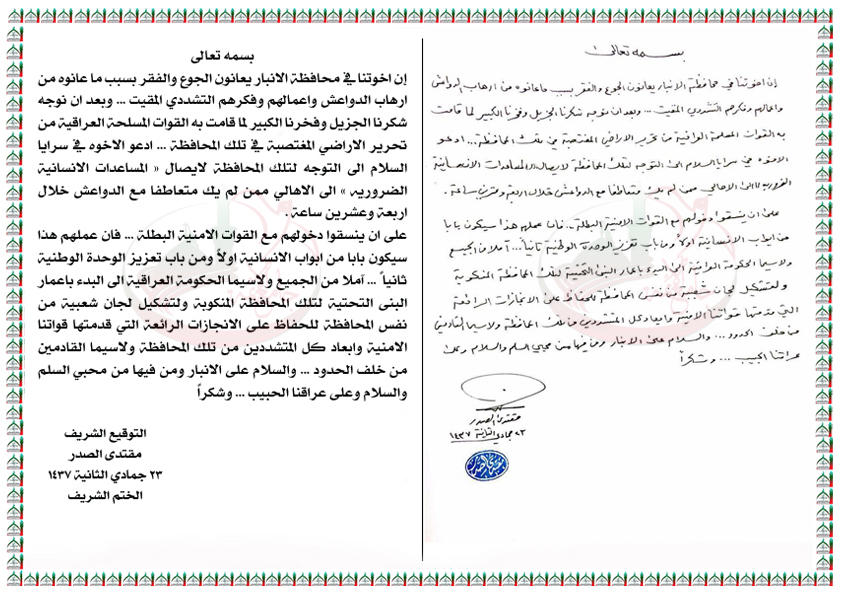 بسمه تعالى
إن اخوتنا في محافظة الانبار يعانون الجوع والفقر بسبب ما عانوه من ارهاب الدواعش
واعمالهم وفكرهم التشددي المقيت ... وبعد ان نوجه شكرنا الجزيل وفخرنا الكبير لما قامت
به القوات المسلحة العراقية من تحرير الاراضي المغتصبة في تلك المحافظة ... ادعو
الاخوه في سرايا السلام الى التوجه لتلك المحافظة لايصال «المساعدات الانسانية
الضروريه» الى الاهالي ممن لم يك متعاطفا مع الدواعش خلال اربعة وعشرين ساعة .
على ان ينسقوا دخولهم مع القوات الامنية البطلة .. فان عملهم هذا سيكون بابا
من ابواب الانسانية اولاً ومن باب تعزيز الوحدة الوطنية ثانياً ... آملا من الجميع
ولاسيما الحكومة العراقية الى البدء باعمار البنى التحتية لتلك المحافظة المنكوبة
ولتشكيل لجان شعبية من نفس المحافظة للحفاظ على الانجازات الرائعة
التي قدمتها قواتنا الامنية وابعاد كل المتشددين من تلك المحافظة ولاسيما القادمين
من خلف الحدود ... والسلام على الانبار ومن فيها من محبي السلم والسلام وعلى
عراقنا الحبيب ... وشكراً
مقتدى الصدر
٢٣ جمادي الثانية ١٤٣٧
بسمه تعالى
إن اخوتنا في محافظة الانبار يعانون الجوع والفقر بسبب ما عانوه من
ارهاب الدواعش واعمالهم وفكرهم التشددي المقيت ... وبعد ان نوجه
شكرنا الجزيل وفخرنا الكبير لما قامت به القوات المسلحة العراقية من
تحرير الاراضي المغتصبة في تلك المحافظة ... ادعو الاخوه في سرايا
السلام الى التوجه لتلك المحافظة لايصال « المساعدات الانسانية
الضروريه » الى الاهالي ممن لم يك متعاطفا مع الدواعش خلال
اربعة وعشرين ساعة .
على ان ينسقوا دخولهم مع القوات الامنية البطلة ... فان عملهم هذا
سيكون بابا من ابواب الانسانية اولاً ومن باب تعزيز الوحدة الوطنية
ثانياً ... آملا من الجميع ولاسيما الحكومة العراقية الى البدء باعمار
البنى التحتية لتلك المحافظة المنكوبة ولتشكيل لجان شعبية من
نفس المحافظة للحفاظ على الانجازات الرائعة التي قدمتها قواتنا
الامنية وابعاد كل المتشددين من تلك المحافظة ولاسيما القادمين
من خلف الحدود ... والسلام على الانبار ومن فيها من محبي السلم
والسلام وعلى عراقنا الحبيب ... وشكراً
التوقيع الشريف
مقتدى الصدر
٢٣ جمادي الثانية ١٤٣٧
الختم الشريف